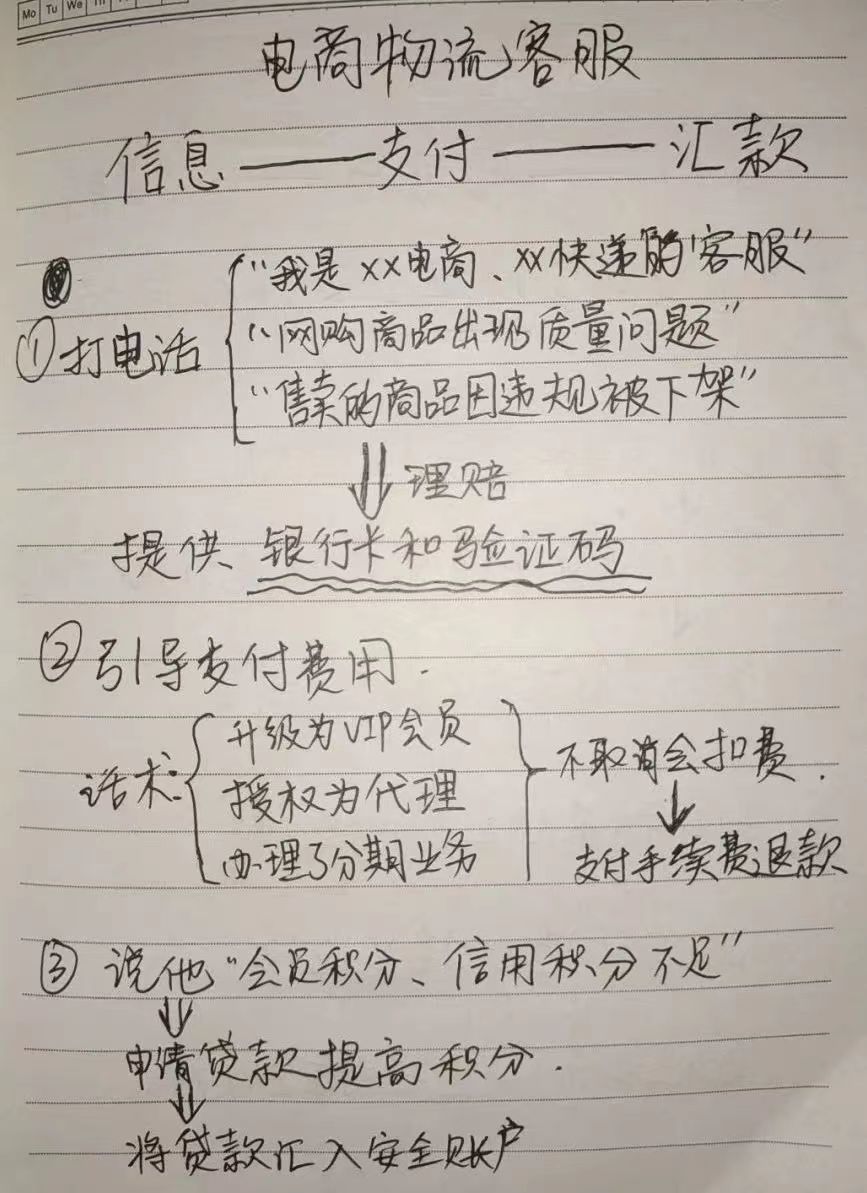 Mo Tu We Th
电商物流客服
信息——支付——汇款
①打电话
“我是XX电商、XX快递的“客服”
“网购商品出现质量问题”
“售卖的商品因违规被下架”
理赔
提供、银行卡和验证码
②引导支付费用.
话术:
升级为VIP会员
授权为代理
办理了分期业务
不取消会扣费.
支付手续费退款
③说他“会员积分、信用积分不足”
申请贷款提高积分.
将贷款汇入安全账户